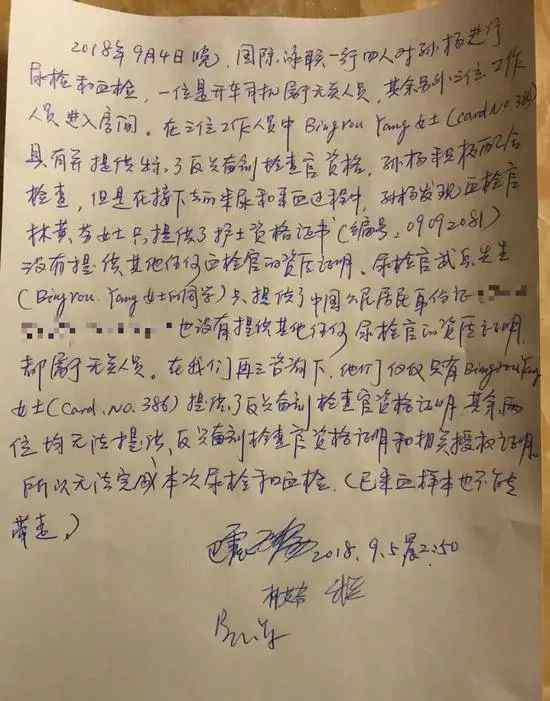 2018年9月4日晚，国际泳联一行四人对孙杨进行
尿检和血检，一位是开车司机属于无关人员，其余另外三位工作
人员进入房间。在三位工作人员中Bingrou Yang女士(card.No.386)
具有并提供出示了反兴奋剂检查官资格，孙杨积极配合
检查，但是在接下去的采尿和采血过程中，孙杨发现血检官
林 女士只提供了护士资格证书(编号：09092081)
没有提供其他任何血检官的资历证明。尿检官 先生
(Bingrou Yang女士的同学)只提供了中国公民居民身份证
也没有提供其他任何尿检官的资历证明，
都属于无关人员。在我们再三咨询下，他们仅仅只有Bingrou Yang
女士(Card.No.386)提供了反兴奋剂检查官资格证明，其余两
位均无法提供反兴奋剂检查官资格证明和相关授权证明。
所以无法完成本次尿检和血检.(已采血样本也不能
带走.)
2018.9.5晨2:50